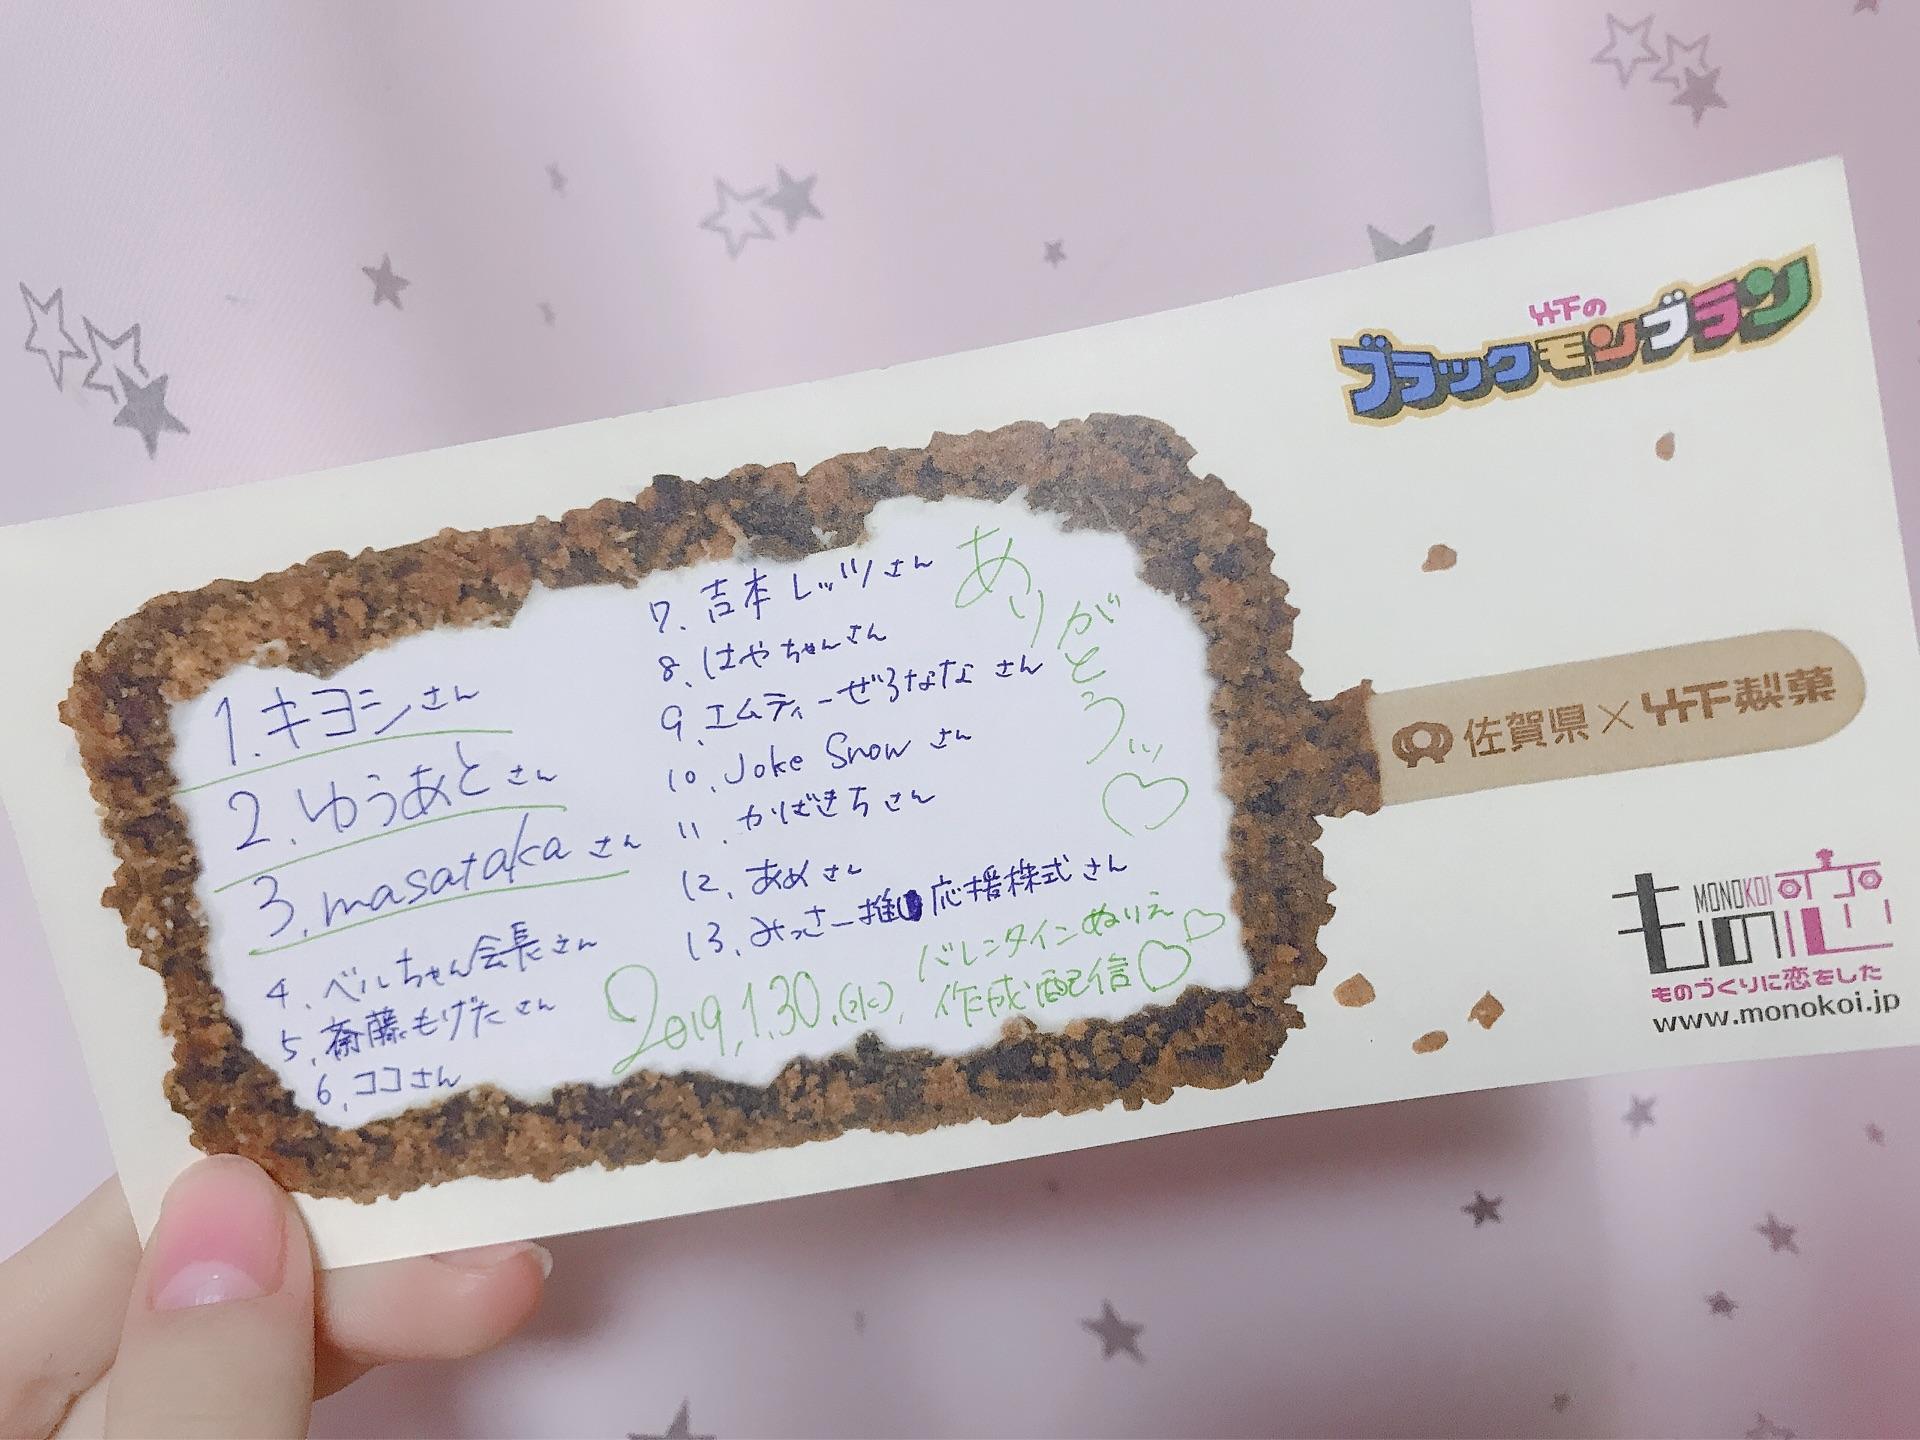 1. キヨシさん
2. ゆうあとさん
3. masatakaさん
4. べルちゃん会長さん
5. 斎藤もげたさん
6. ココさん
7. 吉本レッツさん
8. はやちゃんさん
9. エムティーぜろななさん
10. Joke Snowさん
11. かばきちさん
12. あめさん
13. みっさー推し応援株式さん
ありがとうッ♡
2019.1.30.(水).
バレンタインぬりえ
作成配信♡♡
竹下の
ブラックモンブラン
佐賀県×竹下製菓
MONOKOI
もの恋
ものづくりに恋をした
www.monokoi.jp